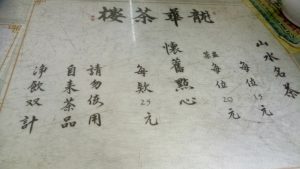 龍華茶楼
山水名茶
每位15元
每位20元
懷舊點心
每款25元
請勿使用
自来茶品
淨飲双計